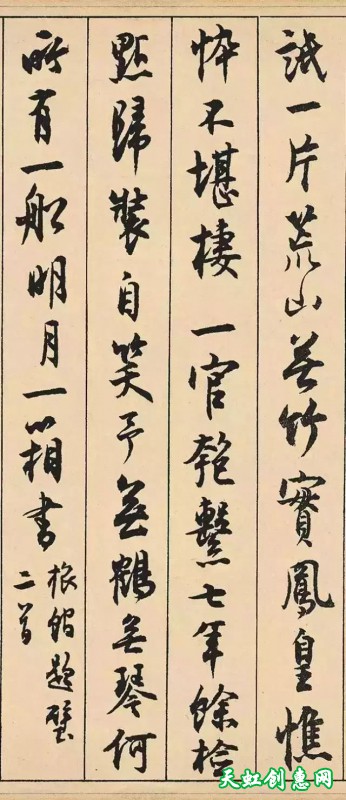 一片荒山無竹實鳳皇憔
悴不堪棲一官匏繫七年餘檢
點歸裝自笑予無鶴無琴何
所有一船明月一箱書
旅館題壁
二首
天虹创惠网